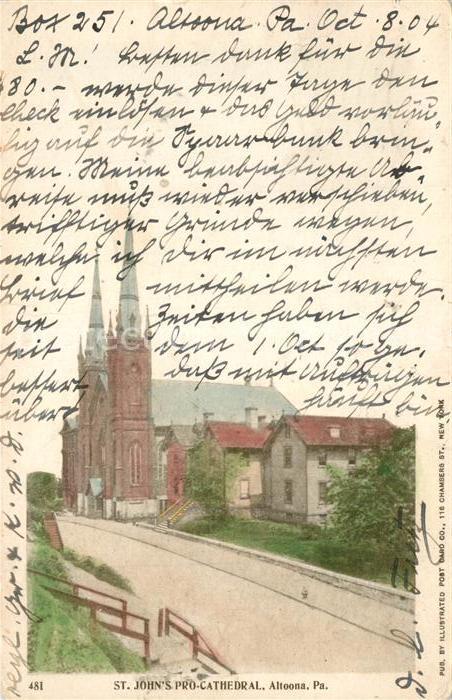 Box 251. Altoona. Pa. Oct. 8. 04
L. M.! besten dank für die
80.- werde dieser Tage den
Check einlösen & das Geld vorläu-
fig auf die Spaarbank brin-
gen. Meine beabsichtigte Ab-
reise muß wieder verschieben,
trifftiger Gründe wegen,
welche ich dir im nächsten
Brief mittheilen werde.
die Zeiten haben sich
seit dem 1. Oct so ge-
bessert daß mit Aufträgen
über häuft bin
Gr. & K. v. d.
d. l. Fritz
481 ST. JOHN'S PRO-CATHEDRAL, Altoona, Pa.
PUB. BY ILLUSTRATED POST CARD CO., 116 CHAMBERS ST., NEW YORK